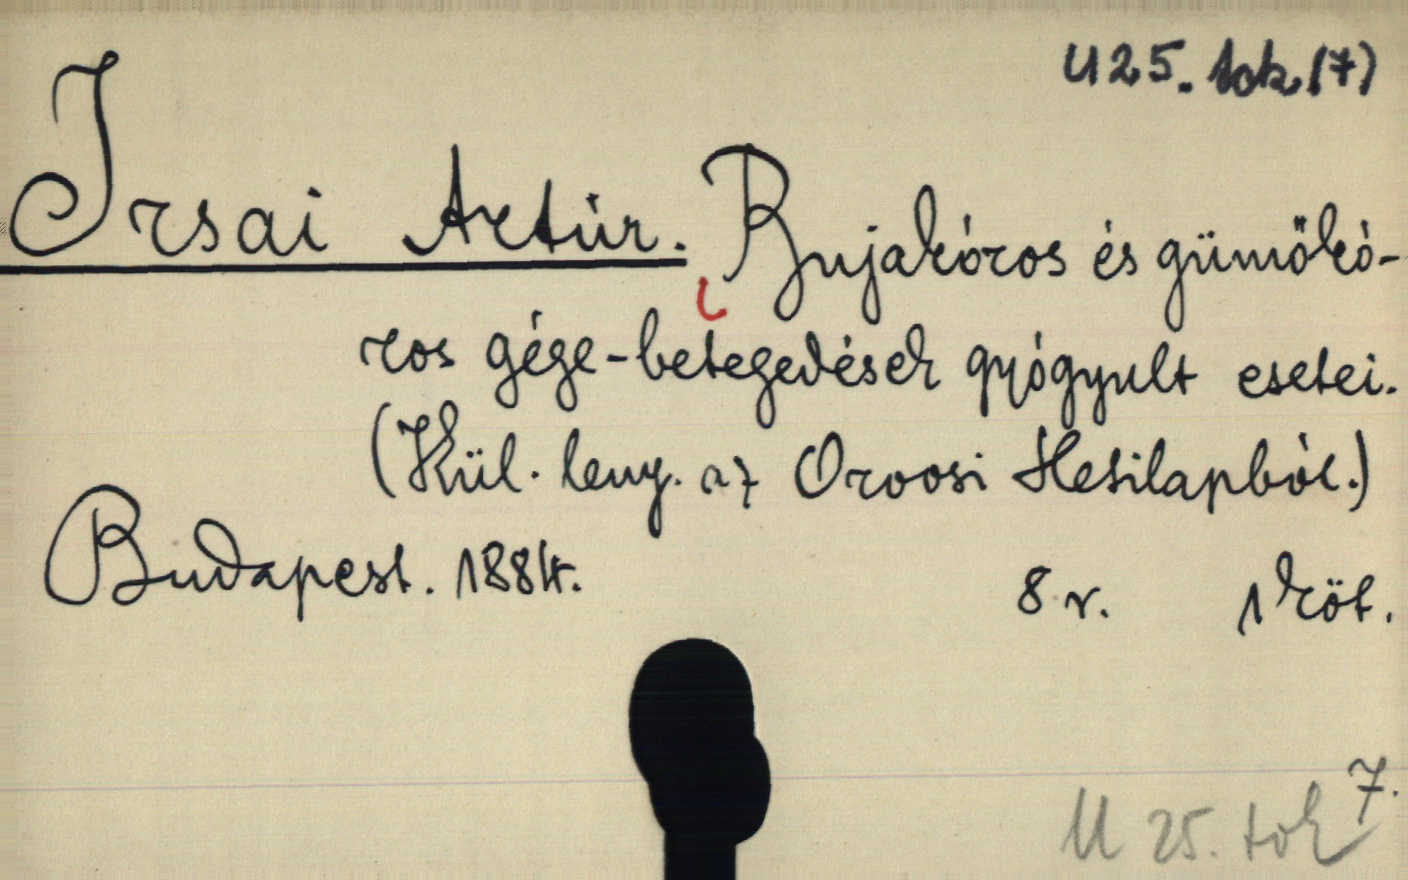 U 25. tok (7)
Irsai Artúr. Bujakóros és gümőkó-
ros gége-betegedések gyógyult esetei.
(Kül. leny. az Orvosi Hetilapból.)
Budapest. 1884. 8 r. 1 köt.
U 25. tok 7.